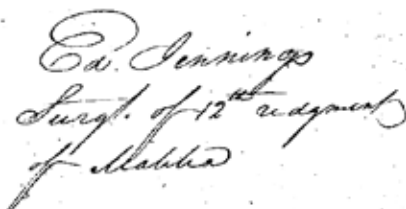 Ed. Jennings
Surgt. of 12th redgment
of Malitia